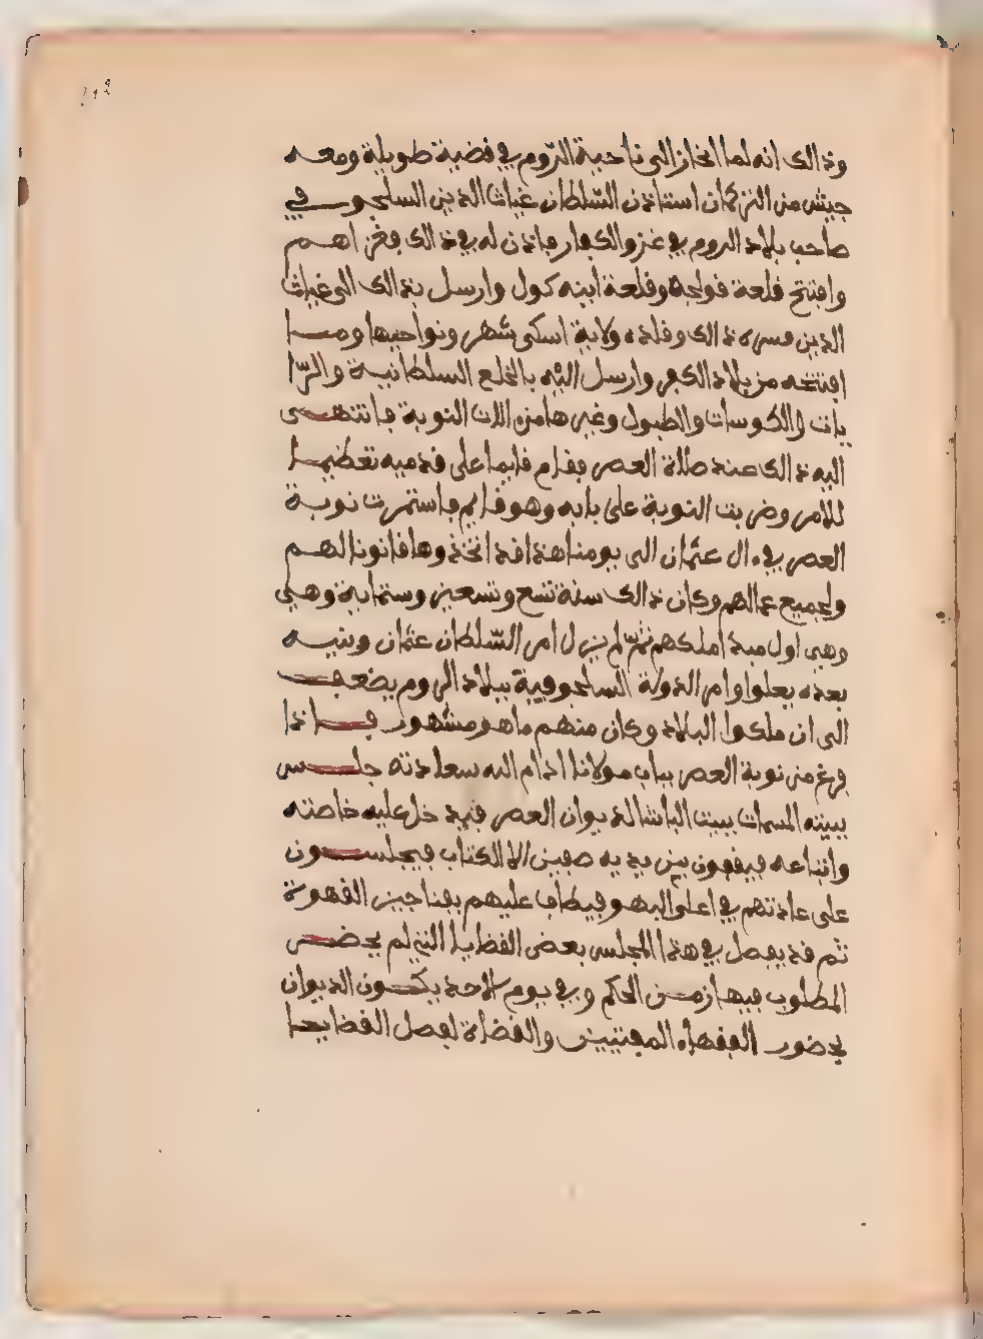 وذالك انه لما انحاز الى ناحية الرّوم في قضية طويلة ومعه
جيش من التركمان استاذن السّلطان غياث الدين السلجوقي
صاحب بلاد الروم في غزو الكفار فاذن له في ذالك فغزاهم
وافتتح قلعة قولجه وقلعة اينه كول وارسل بذالك الى غياث
الدين فسره ذالك وقلده ولاية اسكى شهر ونواحيها وما
افتتحه من بلاد الكفر وارسل اليه بالخلع السلطانية والرّا
يات والكوسات والطبول وغيرها من الات النوبة فانتهى
اليه ذالك عند صلاة العصر فقام قايما على قدميه تعظيما
للامر وضربت النوبة على بابه وهو قايم فاستمرت نوبة
العصر في ءال عثمان الى يومنا هذا قد اتخذوها قانونا لهم
ولجميع عمالهم وكان ذالك سنة تسع وتسعين وستماية وهى
وهى اول مبدا ملكهم ثمّ لم يزل امر السّلطان عثمان وبنيه
بعده يعلوا وامر الدولة السلجوقية ببلاد الروم يضعف
الى ان ملكوا البلاد وكان منهم ما هو مشهور فاذا
فرغ من نوبة العصر بباب مولانا ادام الله سعادته جلس
ببيته المسمات ببيت الباشا لديوان العصر فيدخل عليه خاصته
واتباعه فيقفون بين يديه صفين الا الكتاب فيجلسون
على عادتهم في اعلى البهو فيطاف عليهم بفناجين القهوة
ثم قد يفصل في هذا المجلس بعض القضايا التي لم يحضر
المطلوب فيها زمن الحكم وفي يوم الاحد يكون الديوان
بحضور الفقهاء المفتيين والقضاة لفصل القضايا